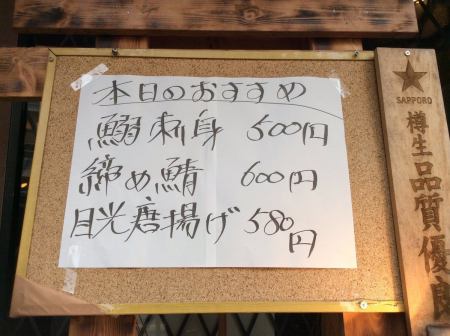 本日のおすすめ
鰯刺身 500円
締め鯖 600円
目光唐揚げ 580円
SAPPORO
樽生品質優良